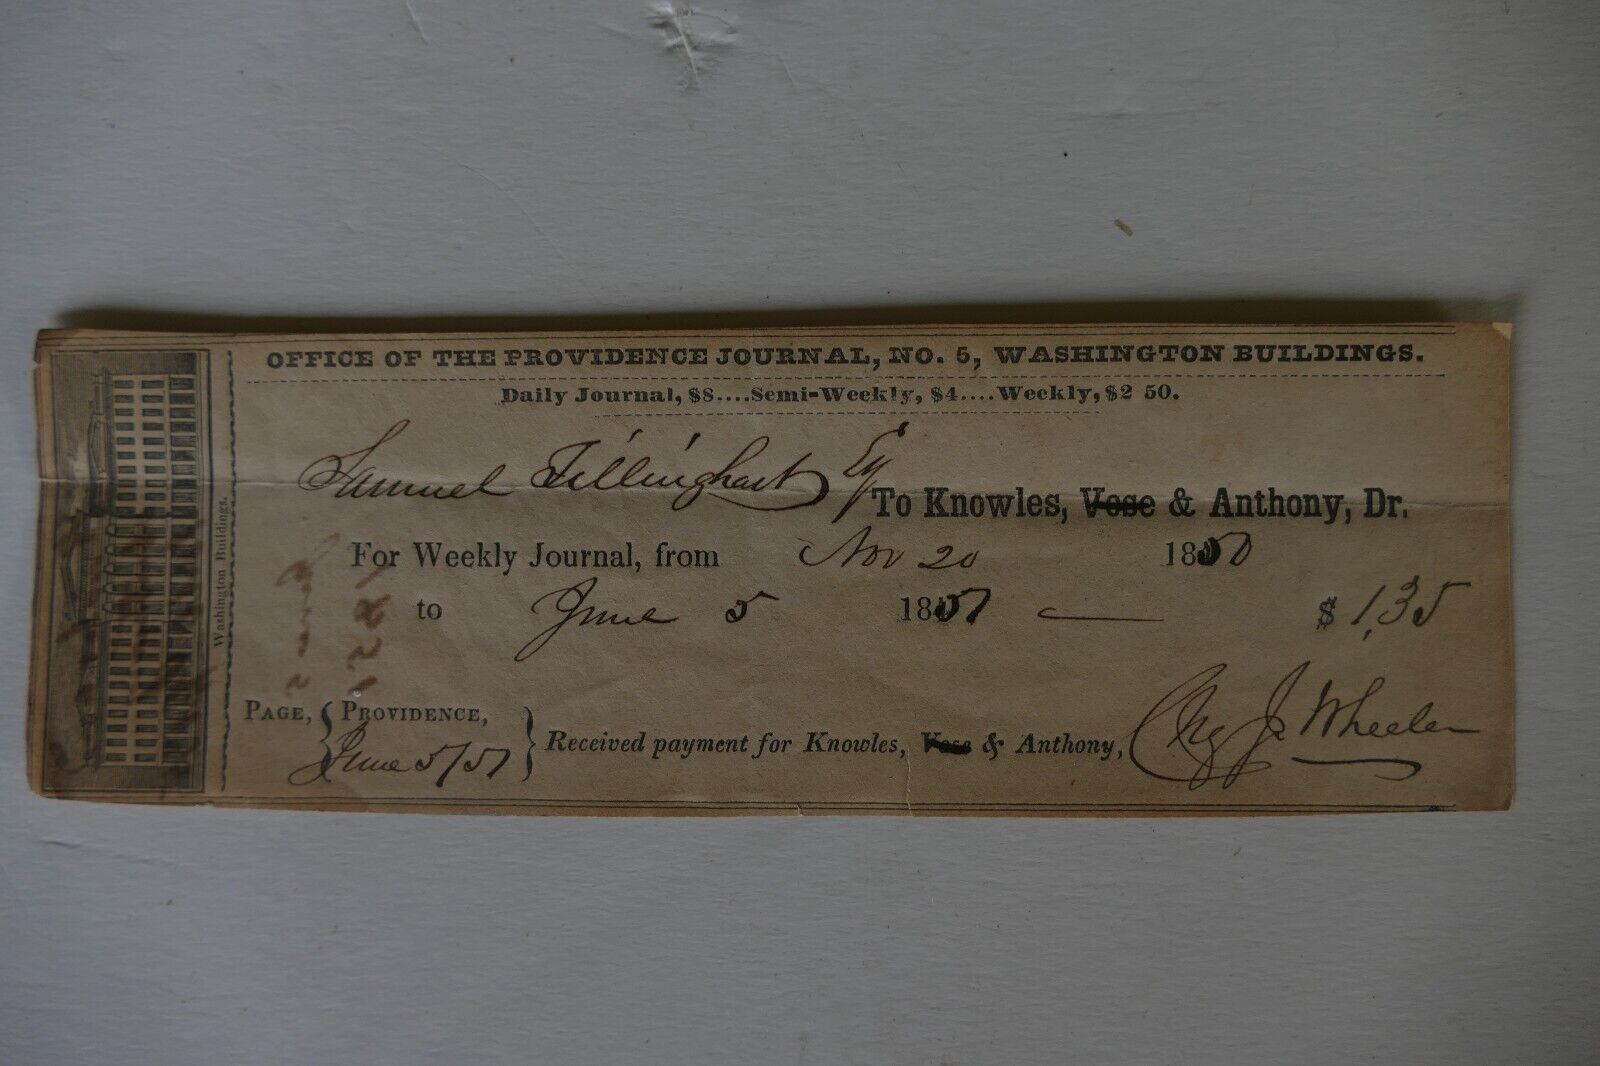 OFFICE OF THE PROVIDENCE JOURNAL, NO. 5, WASHINGTON BUILDINGS.
Daily Journal, $8....Semi-Weekly, $4....Weekly, $2 50.
Samuel Tillinghast Esq
To Knowles, Vose & Anthony, Dr.
For Weekly Journal, from Nov 20 1850
to June 5 1851 — $ 1,35
PAGE, { PROVIDENCE, June 5/51 } Received payment for Knowles, Vose & Anthony, J. Wheeler
Washington Buildings.